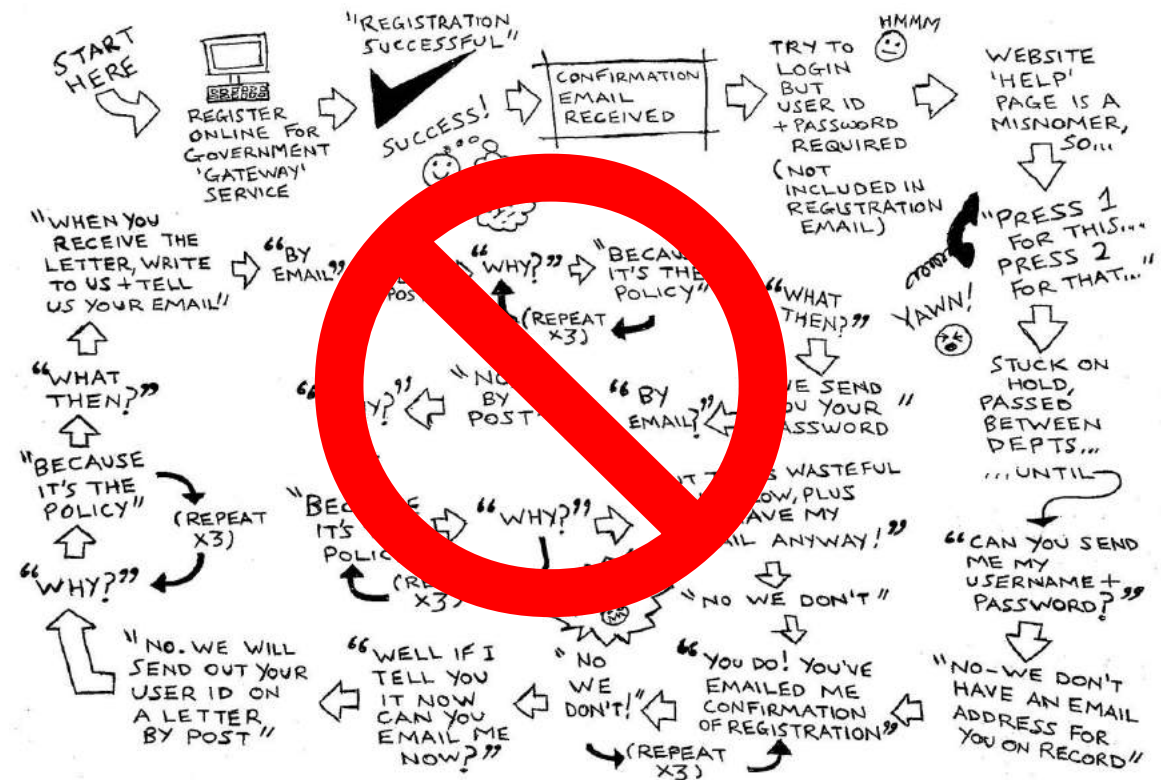 START
HERE
REGISTER
ONLINE FOR
GOVERNMENT
'GATEWAY'
SERVICE
"REGISTRATION
SUCCESSFUL"
SUCCESS!
CONFIRMATION
EMAIL
RECEIVED
TRY TO
LOGIN
BUT
USER ID
+ PASSWORD
REQUIRED
(NOT
INCLUDED IN
REGISTRATION
EMAIL)
HMMM
WEBSITE
'HELP'
PAGE IS A
MISNOMER,
SO...
"PRESS 1
FOR THIS...
PRESS 2
FOR THAT..."
YAWN!
STUCK ON
HOLD,
PASSED
BETWEEN
DEPTS...
...UNTIL
"CAN YOU SEND
ME MY
USERNAME +
PASSWORD?"
"NO-WE DON'T
HAVE AN EMAIL
ADDRESS FOR
YOU ON RECORD"
"YOU DO! YOU'VE
EMAILED ME
CONFIRMATION
OF REGISTRATION"
(REPEAT
X3)
"NO
WE
DON'T!"
"WELL IF I
TELL YOU
IT NOW
CAN YOU
EMAIL ME
NOW?"
"NO. WE WILL
SEND OUT YOUR
USER ID ON
A LETTER
BY POST"
"WHY?"
"BECAUSE
IT'S THE
POLICY"
(REPEAT
X3)
"WHAT
THEN?"
"WHEN YOU
RECEIVE THE
LETTER, WRITE
TO US + TELL
US YOUR EMAIL"
"BY
EMAIL?"
"WHY?"
IT'S THE
POLICY"
(REPEAT
X3)
"WHAT
THEN?"
SEND
YOUR"
"BY
EMAIL?"
BY
POST
IT'S
X3)
"WHY?"
WASTEFUL
PLUS
MY
ANYWAY!"
"NO WE DON'T"